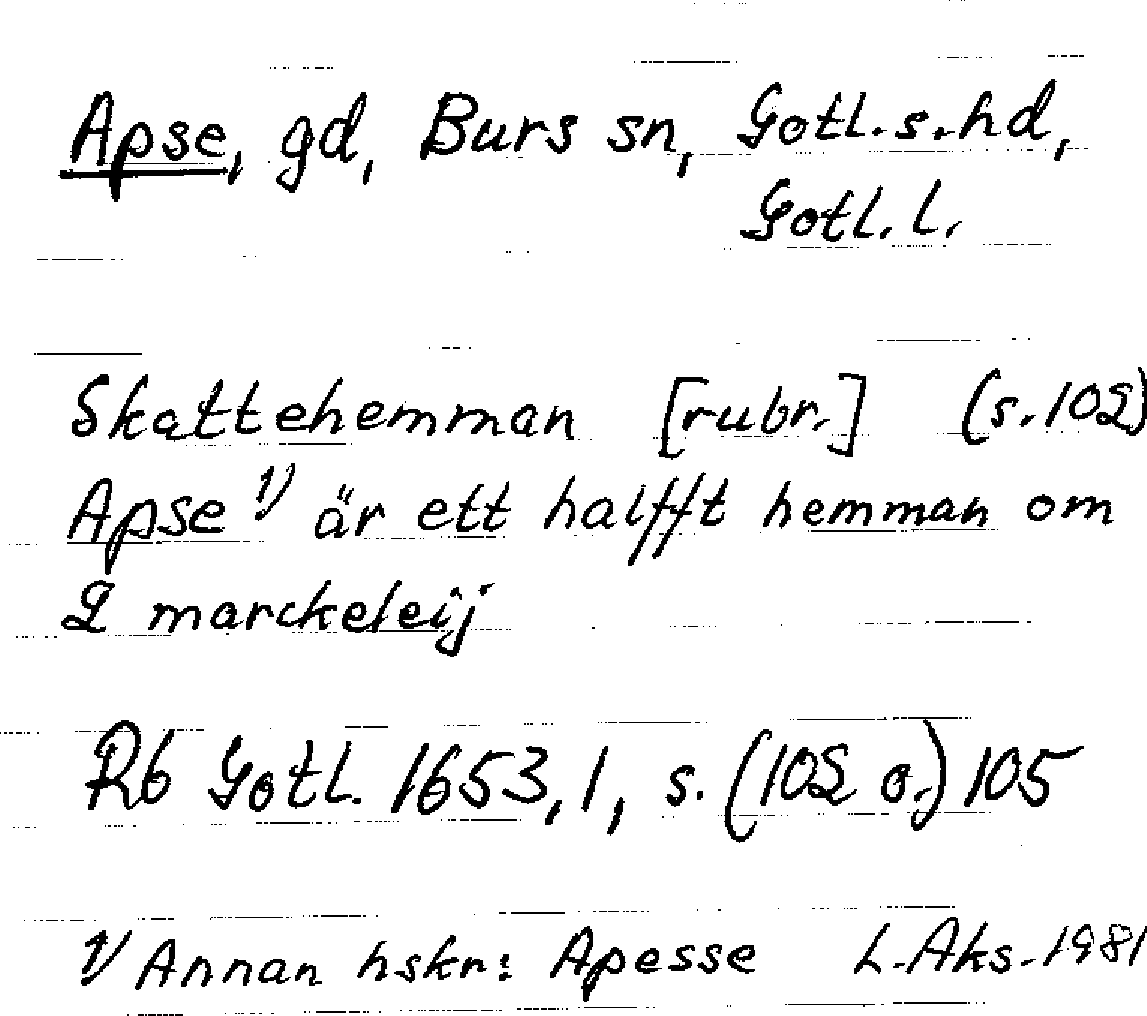 Apse, gd, Burs sn, Gotl.s.hd,
Gotl. l.
Skattehemman [rubr.] (s.102)
Apse 1) är ett halfft hemman om
2 marckeleij
Rb Gotl. 1653,1, s. (102 o.) 105
1) Annan hskr: Apesse L.Aks. 1981